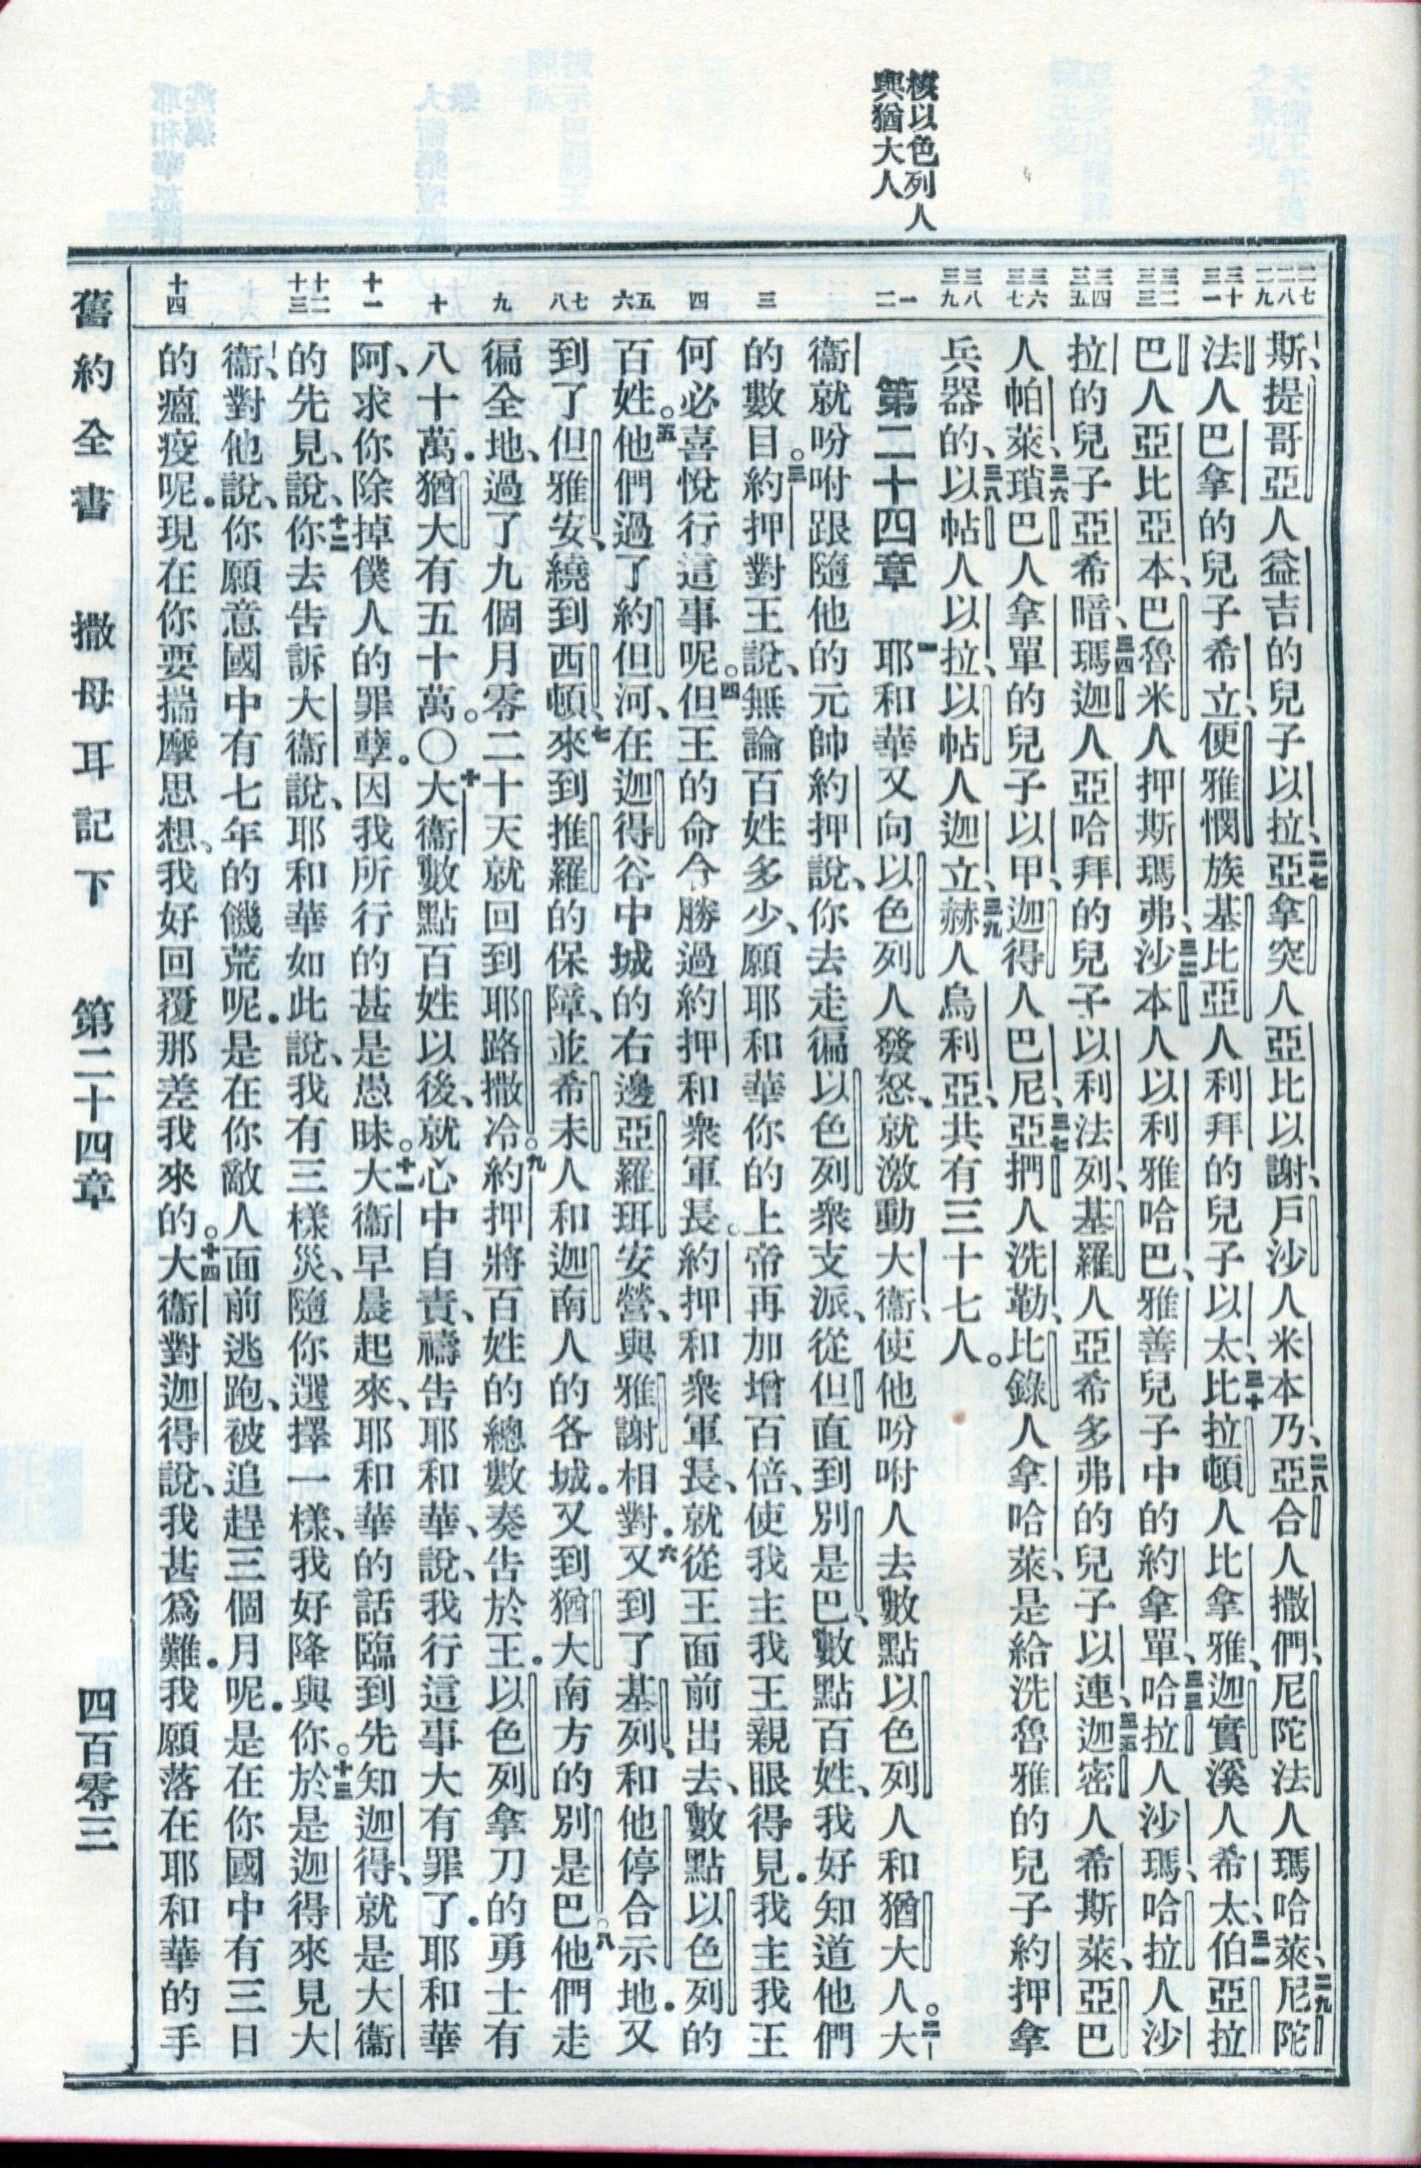 核以色列人
與猶大人
二七 二八 二九
三十 三一
三二 三三
三四 三五
三六 三七
三八 三九
一 二
三
四
五 六
七 八
九
十
十一
十二 十三
十四
斯、提哥亞人益吉的兒子以拉、二七亞拿突人亞比以謝、戶沙人米本乃、二八亞合人撒們、尼陀法人瑪哈萊、二九尼陀
法人巴拿的兒子希立、便雅憫族基比亞人利拜的兒子以太、三十比拉頓人比拿雅、迦實溪人希太、三一伯亞拉
巴人亞比亞本、巴魯米人押斯瑪弗、三二沙本人以利雅哈巴、雅善兒子中的約拿單、三三哈拉人沙瑪、哈拉人沙
拉的兒子亞希暗、三四瑪迦人亞哈拜的兒子以利法列、基羅人亞希多弗的兒子以連、三五迦密人希斯萊、亞巴
人帕萊、三六瑣巴人拿單的兒子以甲、迦得人巴尼、三七亞捫人洗勒、比錄人拿哈萊、是給洗魯雅的兒子約押拿
兵器的、三八以帖人以拉、以帖人迦立、三九赫人烏利亞、共有三十七人。
第二十四章 一耶和華又向以色列人發怒、就激動大衞、使他吩咐人去數點以色列人和猶大人。二大
衞就吩咐跟隨他的元帥約押說、你去走徧以色列衆支派、從但直到別是巴、數點百姓、我好知道他們
的數目。三約押對王說、無論百姓多少、願耶和華你的上帝再加增百倍、使我主我王親眼得見．我主我王
何必喜悅行這事呢。四但王的命令勝過約押和衆軍長。約押和衆軍長、就從王面前出去、數點以色列的
百姓。五他們過了約但河、在迦得谷中城的右邊亞羅珥安營、與雅謝相對．六又到了基列、和他停合示地．又
到了但雅安、繞到西頓、七來到推羅的保障、並希未人和迦南人的各城．又到猶大南方的別是巴。八他們走
徧全地、過了九個月零二十天就回到耶路撒冷。九約押將百姓的總數奏告於王．以色列拿刀的勇士有
八十萬．猶大有五十萬。〇十大衞數點百姓以後、就心中自責、禱告耶和華、說、我行這事大有罪了．耶和華
阿、求你除掉僕人的罪孽．因我所行的甚是愚昧。十一大衞早晨起來、耶和華的話臨到先知迦得、就是大衞
的先見、說、十二你去告訴大衞說、耶和華如此說、我有三樣災、隨你選擇一樣、我好降與你。十三於是迦得來見大
衞、對他說、你願意國中有七年的饑荒呢．是在你敵人面前逃跑、被追趕三個月呢．是在你國中有三日
的瘟疫呢．現在你要揣摩思想、我好回覆那差我來的。十四大衞對迦得說、我甚爲難．我願落在耶和華的手
舊約全書 撒母耳記下 第二十四章 四百零三